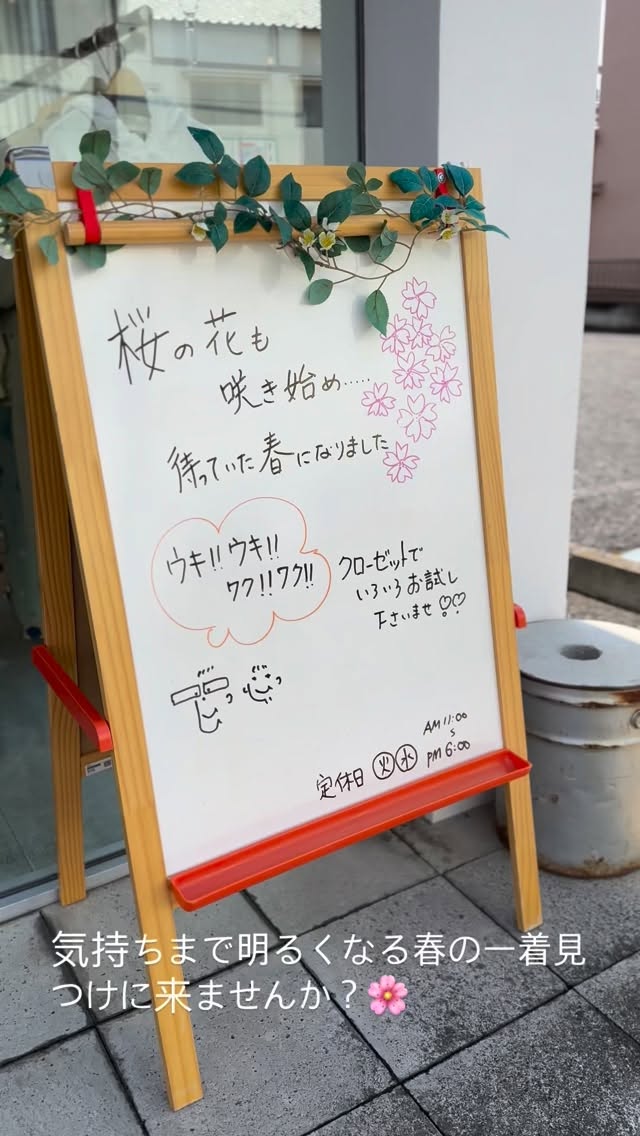 桜の花も
咲き始め.....
待っていた春になりました
ウキ!!ウキ!!
ワク!!ワク!!
クローゼットで
いろいろお試し
下さいませ♡♡
AM 11:00
〜
PM 6:00
定休日 火 水
気持ちまで明るくなる春の一着見
つけに来ませんか？🌸